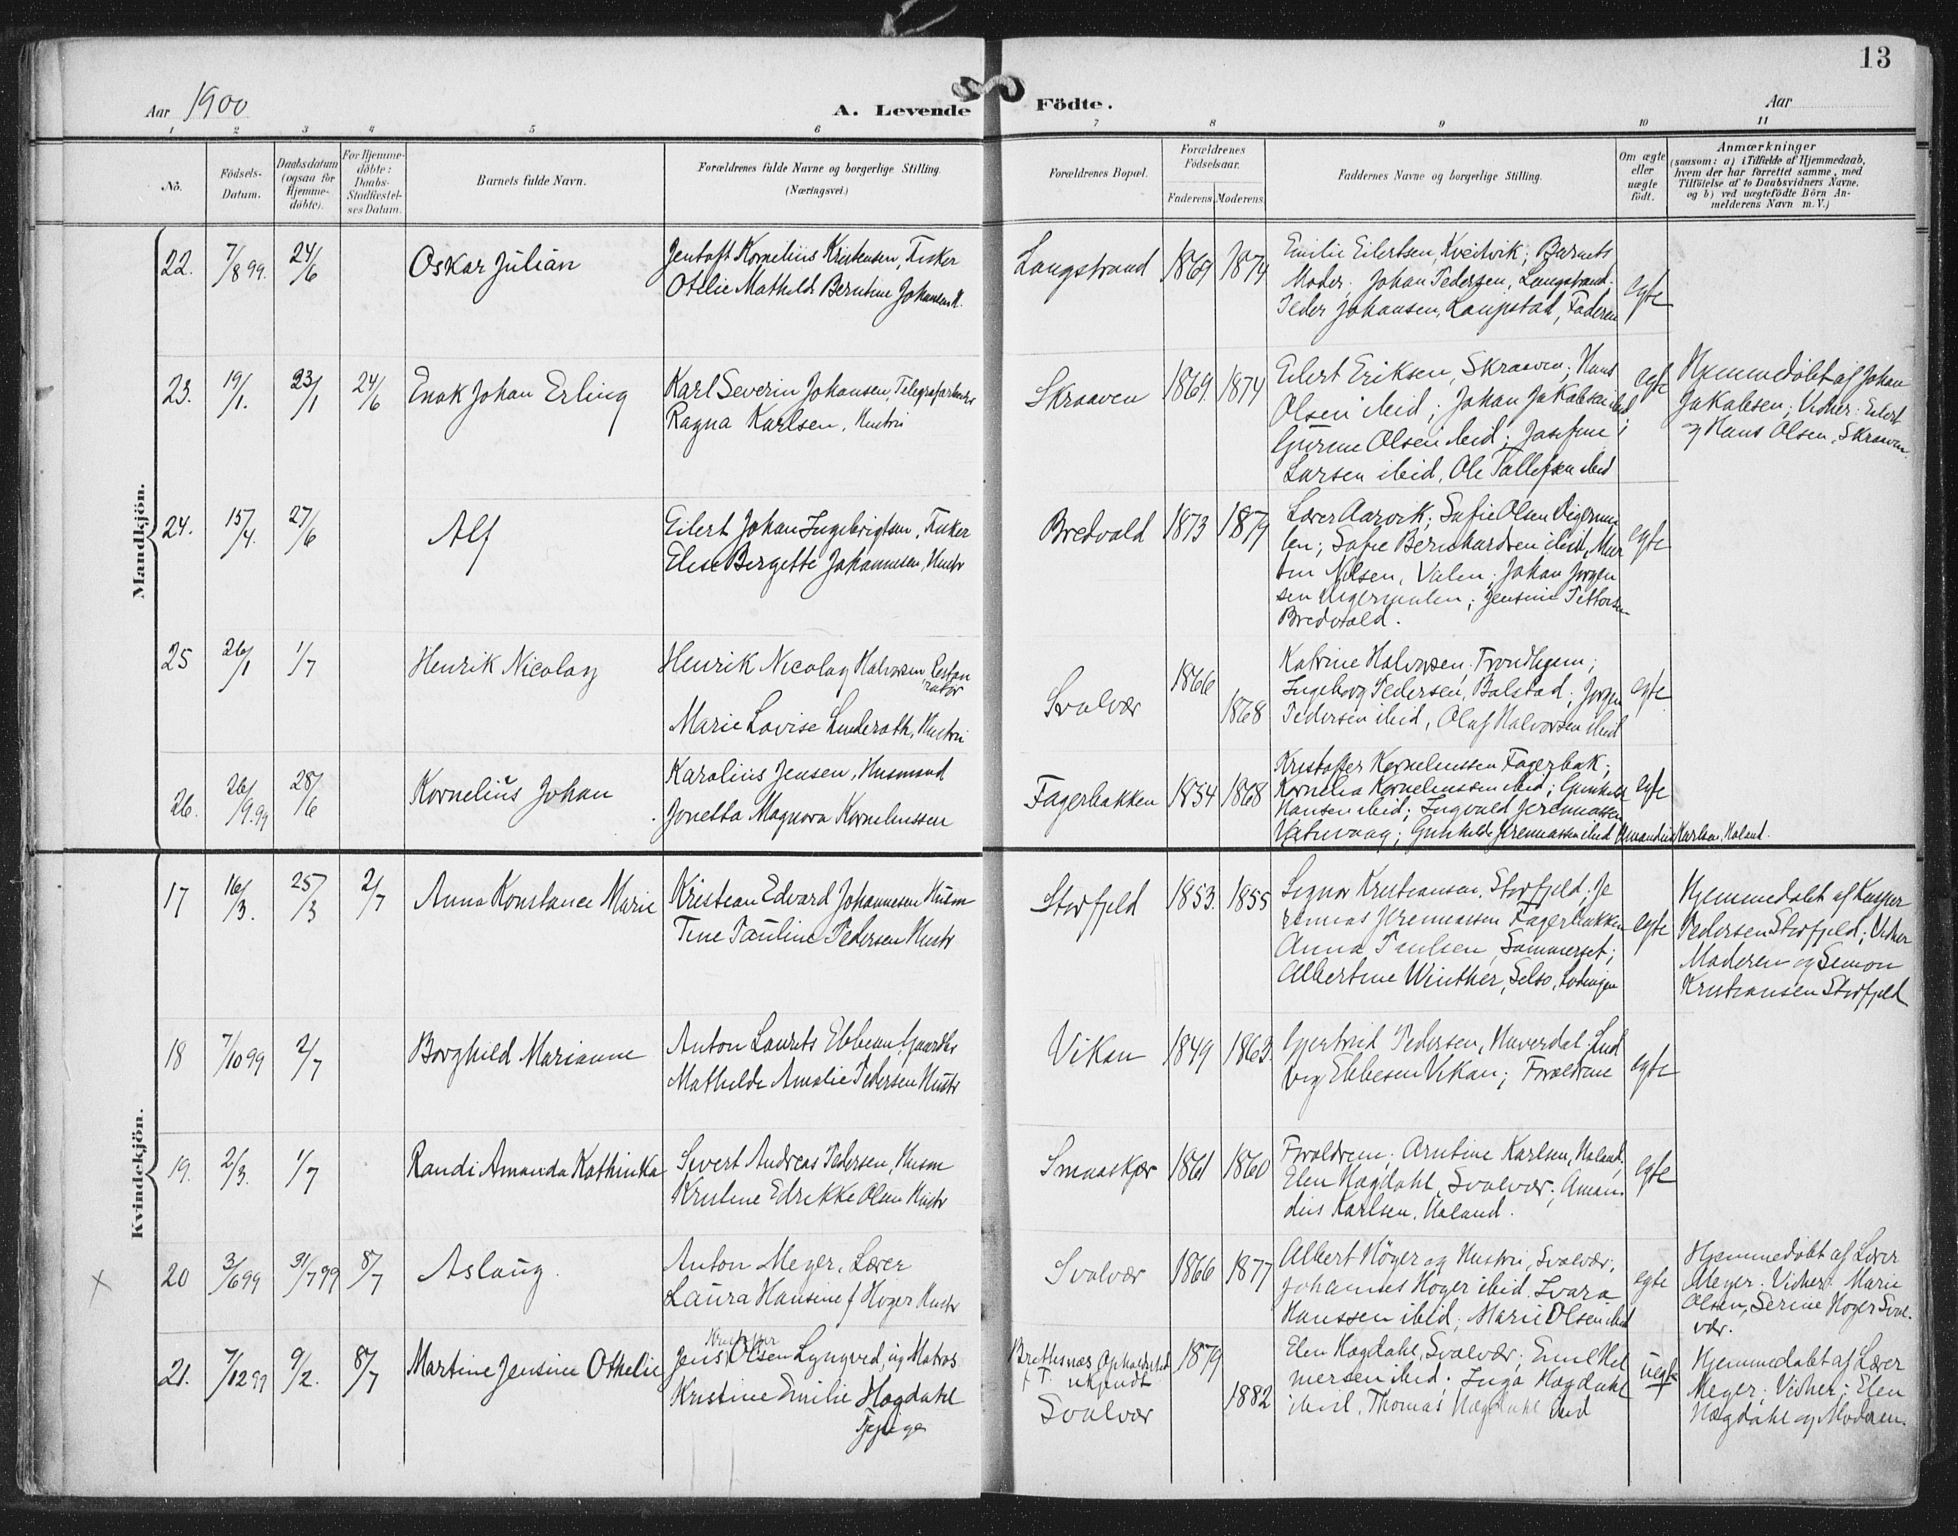 13
Aar 1900
A. Levende Födte.
Aar
1 2 3 4 5 6 7 8 9 10 11
No.
Födsels-Datum.
Daabsdatum (ogsaa for Hjemme-döbte).
For Hjemme-döbte: Daabs-Stadfæstel-ses Datum.
Barnets fulde Navn.
Forældrenes fulde Navne og borgerlige Stilling.
(Næringsvei.)
Forældrenes Bopæl.
Forældrenes Födselsaar.
Faderens. Moderens.
Faddernes Navne og borgerlige Stilling.
Om ægte eller uægte födt.
Anmærkninger
(saasom: a) i Tilfælde af Hjemmedaab,
hvem der har forrettet samme, med
Tilföielse af to Daabsvidners Navne,
og b) ved uægtefödte Börn An-
melderens Navn m. V.)
Mandkjön.
22. 7/8 99. 24/6 Oskar Julian
Jentoft Kornelius Kristensen, Fisker
Otelie Mathilde Berntine Johansen H.
Langstrand 1869 1874
Emilie Eilertsen, Kveitvik; Barnets
Moder; Johan Pedersen, Langstrand;
Peder Johansen, Laupstad, Faderen
egte
23. 19/1. 23/1 24/6 Enok Johan Erling
Karl Severin Johansen, Telegrafarbeider
Ragna Karlsen, Hustru
Skraaven 1869. 1874
Eilert Eriksen, Skraaven; Hans
Olsen ibid; Johan Jakobsen ibid;
Gurine Olsen ibid; Josefine
Larsen ibid, Ole Tollefsen ibid
egte
Hjemmedøbt af Johan
Jakobsen; Vidner: Eilert
og Hans Olsen, Skraaven.
24. 15/4. 27/6 Alf
Eilert Johan Ingebrigtsen, Fisker
Elise Bergette Johannesen, Hustr
Bredvold 1873 1879
Lærer Aarvik; Sofie Olsen Digermu
len; Sofie Bernhardsen ibid, Mar
tin Nilsen, Valen; Johan Jørgen
sen Digermulen; Jensine Pettersen
Bredvold.
egte
25 26/1 1/7 Henrik Nicolay
Henrik Nicolay Halvorsen, Restau
ratør
Marie Lovise Linderoth, Hustru
Svolvær 1866 1868
Katrine Halvorsen, Trondhjem;
Ingeborg Pedersen, Balstad; Jørgen
Pedersen ibid, Oluf Halvorsen ibid
egte
26. 26/9.99 28/6 Kornelius Johan
Karolius Jensen, Husmand
Jonetta Magnora Korneliussen
Fagerbakken 1834 1868
Kristoffer Korneliussen Fagerbak;
Kornelia Korneliussen ibid; Gunhild
Hansen ibid; Ingvald Jeremiassen
Vatnvaag; Gunhilde Jeremiassen ibid Amandus Karlsen, Holand.
egte
Kvindekjön.
17 16/3. 25/3 2/7 Anna Konstance Marie
Kristean Edvard Johannesen Husm
Tine Pauline Pedersen Hustr
Storfjeld 1853. 1855
Signor Kristiansen, Storfjeld; Je
remias Jeremiassen Fagerbakken
Anna Paulsen, Sommerset;
Albertine Winther, Selsø, Lødingen
egte
Hjemmedøbt af Kasper
Pedersen Storfjeld; Vidner
Moderen og Simon
Kristiansen Storfjeld
18 7/10 99 2/7 Borghild Marianne
Anton Laurits Ebbesen, Gaardbr
Mathilde Amalie Pedersen Hustr
Vikan 1849 1863.
Gjertrud Pedersen, Haverdal; Lud
vig Ebbesen Vikan; Forældrene
egte
19. 2/3. 1/7 Randi Amanda Kathinka
Sivert Andreas Pedersen, Husm
Kristine Edrikke Olsen Hustr
Smaaskjær 1861 1860
Forældrene; Arntine Karlsen, Holand;
Elen Hagdahl, Svolvær; Aman
dus Karlsen, Holand.
egte
× 20 3/6 99 31/7 99 8/7 Aslaug
Anton Meyer, Lærer
Laura Hansine f Høyer Hustr
Svolvær 1866 1877
Albert Höyer og Hustru, Svolvær,
Johannes Høyer ibid. Svara
Hanssen ibid; Marie Olsen ibid
egte
Hjemmedøbt af Lærer
Meyer. Vidner: Marie
Olsen, Serine Høyer Svol-
vær.
21. 7/12 99 9/2. 8/7 Martine Jensine Othelie
Kristoffer
Jens Olsen Lyngved, ug Matros
Kristine Emilie Hagdahl
Tjpige
Brettesnæs Opholdssted
f. T. ukjendt
Svolvær
1879 1882
Elen Hagdahl, Svolvær; Emil Hel
mersen ibid; Inga Hagdahl
ibid. Thomas Hagdahl ibid
uegte
Hjemmedøbt af Lærer
Meyer; Vidner; Elen
Hagdahl og Moderen.